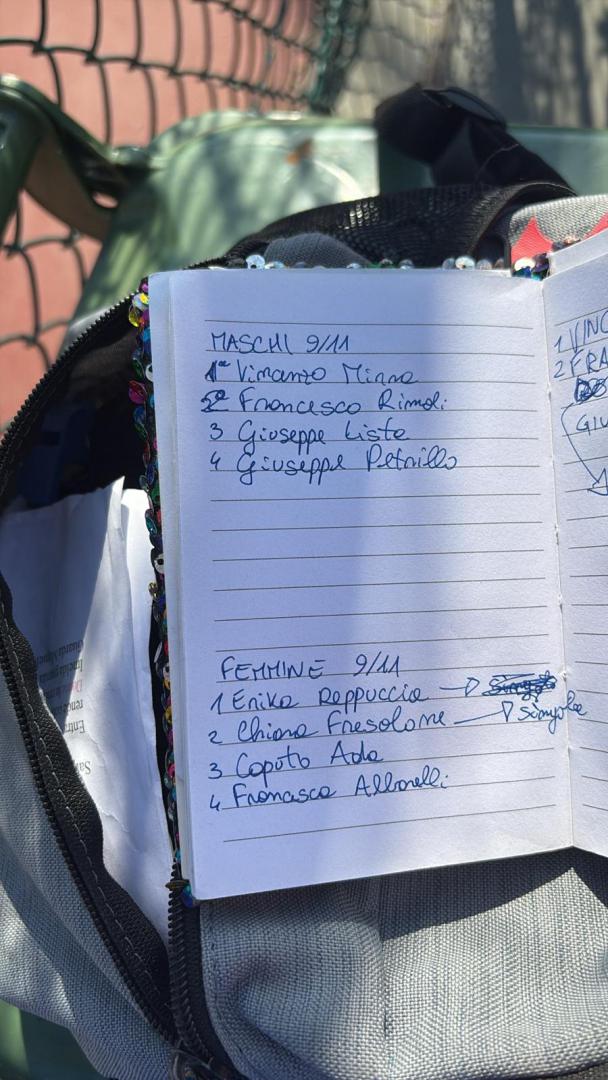 MASCHI 9/11
1° Vincenzo Minna
2° Francesco Rimoli
3 Giuseppe Liste
4 Giuseppe Petrillo
FEMMINE 9/11
1 Erika Reppuccia
2 Chiara Fresolone
3 Caputo Ada
4 Francesca Alborelli
1 VINC
2 FRA
GIU